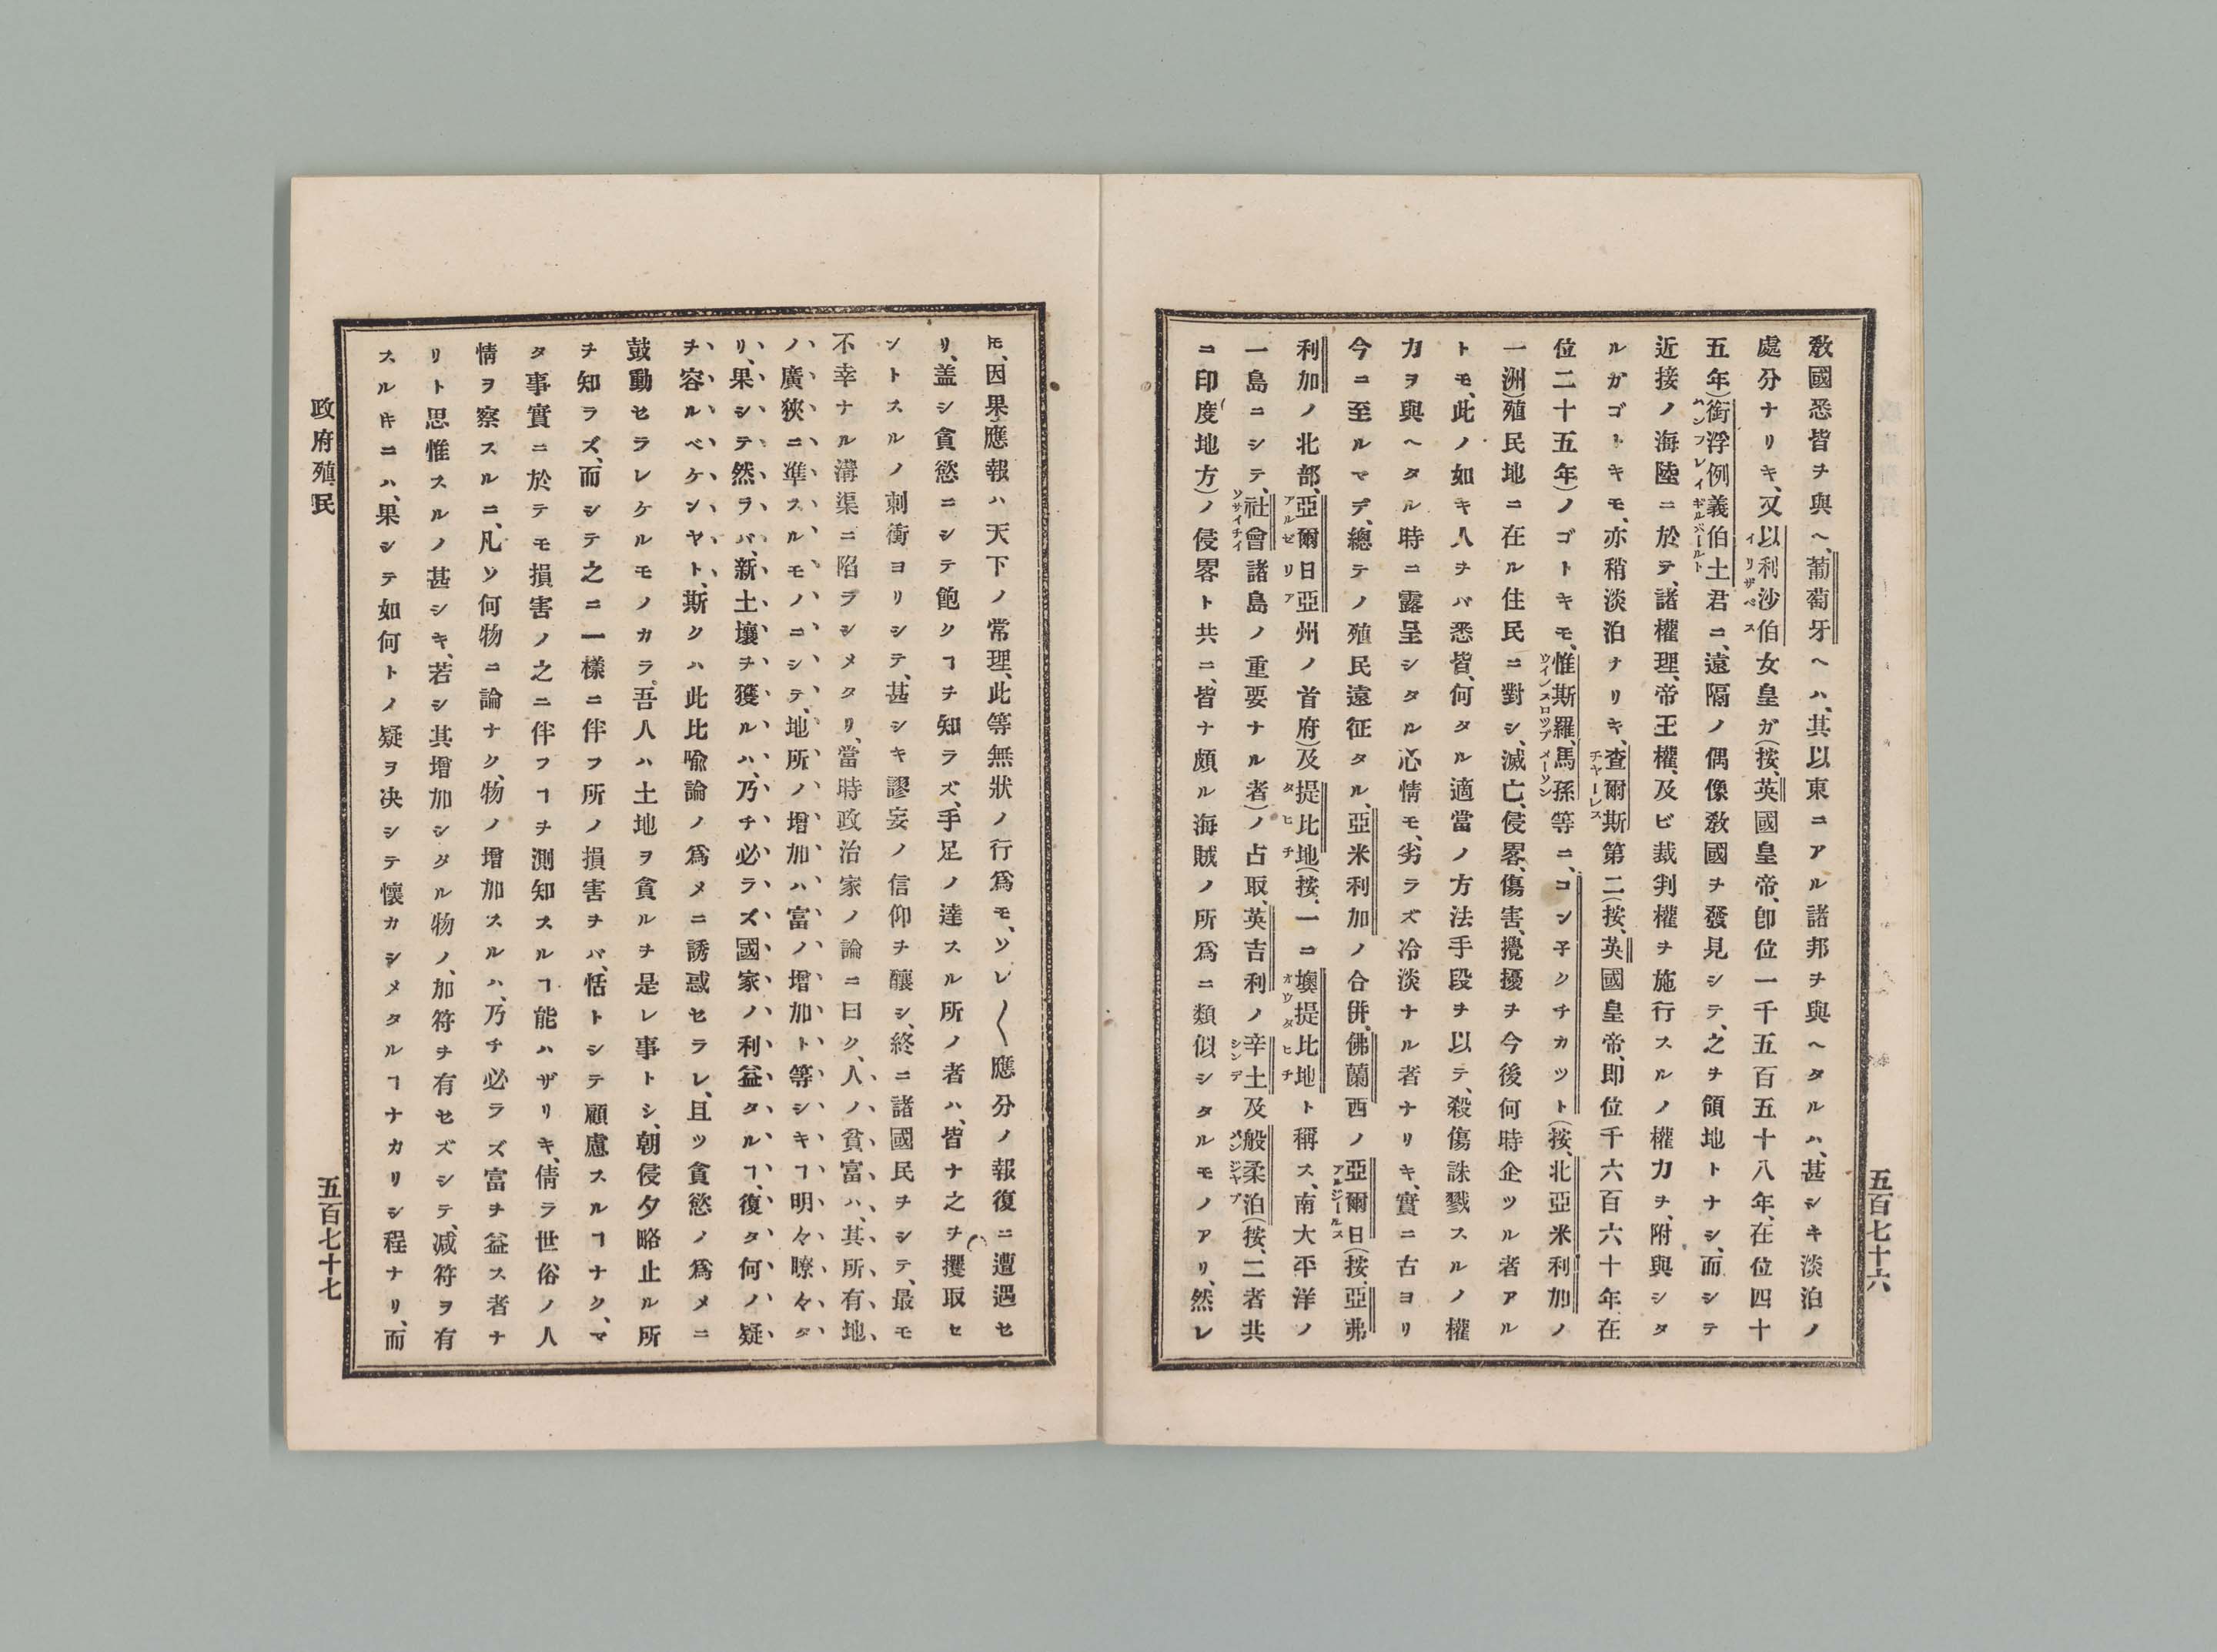 敎國悉皆ヲ與ヘ、葡萄牙ヘハ、其以東ニアル諸邦ヲ與ヘタルハ、甚シキ淡泊ノ
處分ナリキ、又以利沙伯女皇ガ(按、英國皇帝、卽位一千五百五十八年、在位四十
イリザベス
五年)銜浮例義伯土君ニ、遠隔ノ偶像敎國ヲ發見シテ、之ヲ領地トナシ、而シテ
ハンフレイギルバールト
近接ノ海陸ニ於テ、諸權理、帝王權、及ビ裁判權ヲ施行スルノ權力ヲ、附與シタ
ルガゴトキモ、亦稍淡泊ナリキ、査爾斯第二(按、英國皇帝、卽位千六百六十年、在
チヤーレス
位二十五年)ノゴトキモ、惟斯羅、馬孫等ニ、コン子クチカツト(按、北亞米利加ノ
ウインスロツプメーソン
一洲)殖民地ニ在ル住民ニ對シ、滅亡、侵畧、傷害、攪擾ヲ今後何時企ツル者アル
トモ、此ノ如キ人ヲバ悉皆、何タル適當ノ方法手段ヲ以テ、殺傷誅戮スルノ權
力ヲ與ヘタル時ニ露呈シタル心情モ、劣ラズ冷淡ナル者ナリキ、實ニ古ヨリ
今ニ至ルマデ、總テノ殖民遠征タル、亞米利加ノ合併、佛蘭西ノ亞爾日(按、亞弗
アルジールス
利加ノ北部、亞爾日亞州ノ首府)及提比地(按、一ニ墺提比地ト稱ス、南大平洋ノ
アルゼリア
タヒチ
オウタヒチ
一島ニシテ、社會諸島ノ重要ナル者)ノ占取、英吉利ノ辛土及般柔泊(按、二者共
ソサイチイ
シンデ
パンジヤブ
ニ印度地方)ノ侵畧ト共ニ、皆ナ頗ル海賊ノ所爲ニ類似シタルモノアリ、然レ
五百七十六
𪜈、因果應報ハ天下ノ常理、此等無狀ノ行爲モ、ソレ〱應分ノ報復ニ遭遇セ
リ、蓋シ貪慾ニシテ飽クヿヲ知ラズ、手足ノ達スル所ノ者ハ、皆ナ之ヲ攫取セ
ントスルノ刺衝ヨリシテ、甚シキ謬妄ノ信仰ヲ釀シ、終ニ諸國民ヲシテ、最モ
不幸ナル溝渠ニ陷ラシメタリ、當時政治家ノ論ニ曰ク、人ノ貧富ハ、其所有地
ノ廣狹ニ準スルモノニシテ、地所ノ增加ハ富ノ增加ト等シキヿ明々瞭々タ
リ、果シテ然ラバ、新土壤ヲ獲ルハ、乃チ必ラズ國家ノ利益タルヿ、復タ何ノ疑
ヲ容ルベケンヤト、斯クハ此比喩論ノ爲メニ誘惑セラレ、且ツ貪慾ノ爲メニ
鼓動セラレケルモノカラ、吾人ハ土地ヲ貪ルヲ是レ事トシ、朝侵夕略止ル所
ヲ知ラズ、而シテ之ニ一樣ニ伴フ所ノ損害ヲバ、恬トシテ顧慮スルヿナク、マ
タ事實ニ於テモ損害ノ之ニ伴フヿヲ測知スルヿ能ハザリキ、倩ラ世俗ノ人
情ヲ察スルニ、凡ソ何物ニ論ナク、物ノ增加スルハ、乃チ必ラズ富ヲ益ス者ナ
リト思惟スルノ甚シキ、若シ其增加シタル物ノ、加符ヲ有セズシテ、減符ヲ有
スルキニハ、果シテ如何トノ疑ヲ決シテ懷カシメタルヿナカリシ程ナリ、而
政府殖民
五百七十七